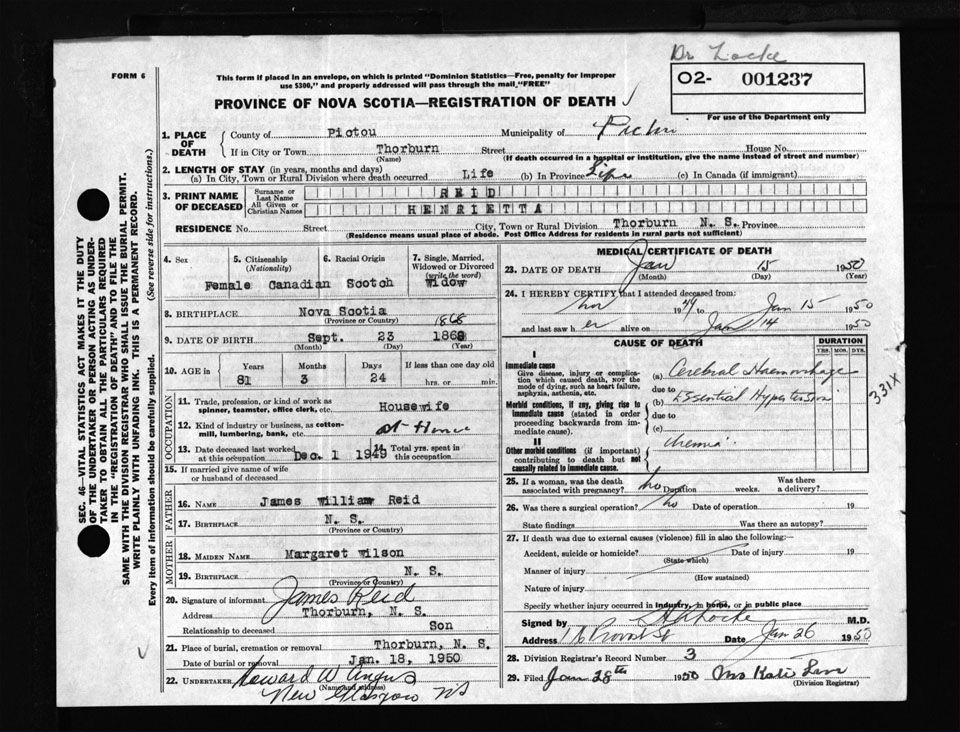 Dr Locke
FORM 6
This form if placed in an envelope, on which is printed "Dominion Statistics—Free, penalty for improper
use $300," and properly addressed will pass through the mail "FREE"
02- 001237
For use of the Department only
PROVINCE OF NOVA SCOTIA—REGISTRATION OF DEATH
1. PLACE OF DEATH
County of Pictou Municipality of Pictou
If in City or Town Thorburn Street House No.
(Name) (If death occurred in a hospital or institution, give the name instead of street and number)
2. LENGTH OF STAY (in years, months and days)
(a) In City, Town or Rural Division where death occurred Life (b) In Province Life (c) In Canada (if immigrant)
3. PRINT NAME OF DECEASED
Surname or Last Name REID
All Given or Christian Names HENRIETTA
RESIDENCE No. Street City, Town or Rural Division Thorburn N. S. Province
(Residence means usual place of abode. Post Office Address for residents in rural parts not sufficient)
4. Sex 5. Citizenship (Nationality) 6. Racial Origin 7. Single, Married, Widowed or Divorced (write the word)
Female Canadian Scotch Widow
8. BIRTHPLACE Nova Scotia
(Province or Country)
1868
9. DATE OF BIRTH Sept. 23 1868
(Month) (Day) (Year)
10. AGE in Years Months Days If less than one day old
81 3 24 hrs. or min.
OCCUPATION
11. Trade, profession, or kind of work as spinner, teamster, office clerk, etc. Housewife
12. Kind of industry or business, as cotton-mill, lumbering, bank, etc. at Home
13. Date deceased last worked at this occupation Dec. 1 1949 14. Total yrs. spent in this occupation
15. If married give name of wife or husband of deceased
FATHER
16. NAME James William Reid
17. BIRTHPLACE N. S.
(Province or Country)
MOTHER
18. MAIDEN NAME Margaret Wilson
19. BIRTHPLACE N. S.
(Province or Country)
20. Signature of informant James Reid
Address Thorburn, N. S.
Relationship to deceased Son
21. Place of burial, cremation or removal Thorburn, N. S.
Date of burial or removal Jan. 18, 1950
22. UNDERTAKER Howard W Angus
(Name and address)
New Glasgow NS
MEDICAL CERTIFICATE OF DEATH
23. DATE OF DEATH Jan 15 1950
(Month) (Day) (Year)
24. I HEREBY CERTIFY that I attended deceased from
Nov 1949 to Jan 15 1950
and last saw her alive on Jan 14 1950
CAUSE OF DEATH DURATION
YRS. MOS. DYS.
I
Immediate cause
Give disease, injury or complication which caused death, NOT the mode of dying, such as heart failure, asphyxia, asthenia, etc.
(a) Cerebral Haemorrhage
due to
Morbid conditions, if any, giving rise to immediate cause (stated in order proceeding backwards from immediate cause).
(b) Essential Hypertension
due to
(c)
331X
II
Other morbid conditions (if important) contributing to death but not causally related to immediate cause.
25. If a woman, was the death associated with pregnancy? no Duration weeks. Was there a delivery?
26. Was there a surgical operation? no Date of operation 19
State findings Was there an autopsy?
27. If death was due to external causes (violence) fill in also the following:—
Accident, suicide or homicide? Date of injury 19
(State which)
Manner of injury
(How sustained)
Nature of injury
Specify whether injury occurred in industry, in home, or in public place
Signed by Locke M.D.
Address Provost St Date Jan 26 1950
28. Division Registrar's Record Number 3
29. Filed Jan 28th 1950 Mrs Kate
(Division Registrar)
SEC. 46—VITAL STATISTICS ACT MAKES IT THE DUTY
OF THE UNDERTAKER OR PERSON ACTING AS UNDERTAKER
TO OBTAIN ALL THE PARTICULARS REQUIRED
IN THE "REGISTRATION OF DEATH" AND TO FILE THE
SAME WITH THE DIVISION REGISTRAR WHO SHALL ISSUE THE BURIAL PERMIT.
WRITE PLAINLY WITH UNFADING INK. THIS IS A PERMANENT RECORD.
Every item of information should be carefully supplied. (See reverse side for instructions.)